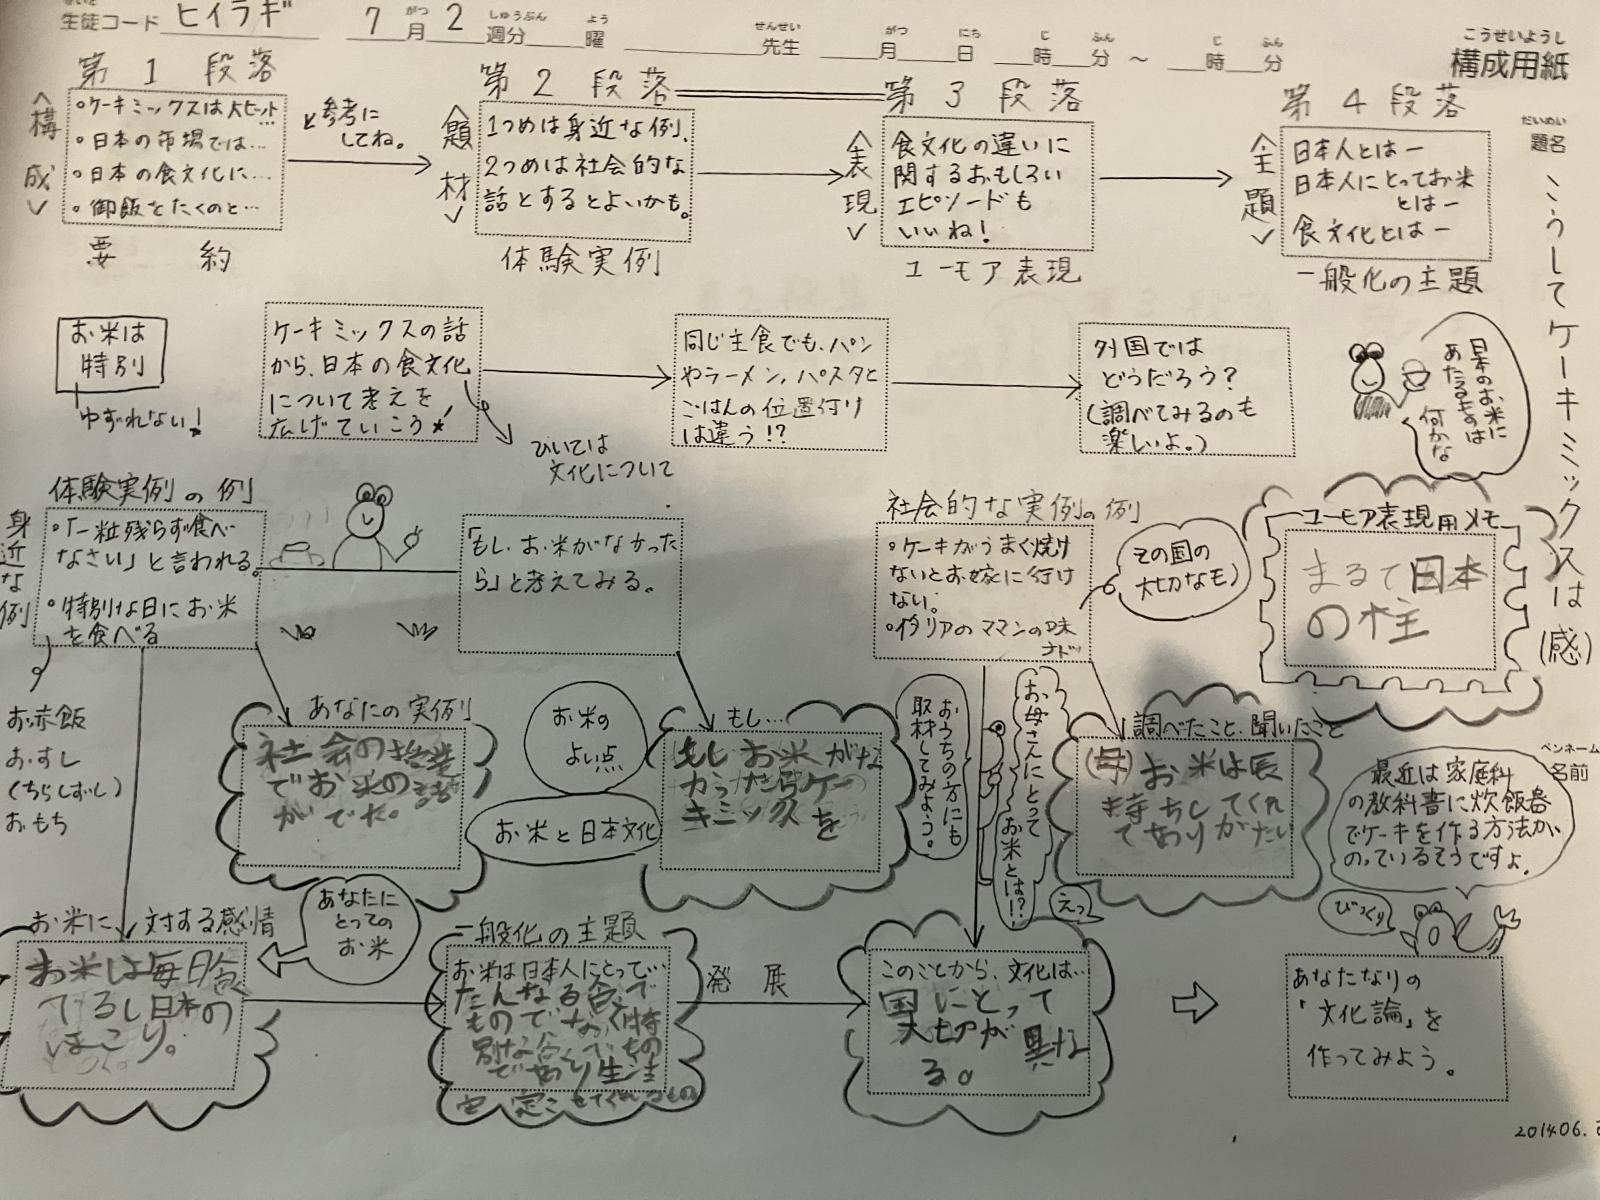 せいと
生徒コード ヒイラギ
7月2週分 曜
がつ しゅうぶん よう
先生 月 日 時 分 ～ 時 分
せんせい がつ にち じ ふん じ ふん
こうせいようし
構成用紙
だいめい
題名
こうしてケーキミックスは(感)
第1段落
<構成>
・ケーキミックスは大ヒット…
・日本の市場では…
・日本の食文化に…
・御飯をたくのと…
要約
と参考に
してね。
第2段落
<題材>
1つめは身近な例、
2つめは社会的な
話とするとよいかも。
体験実例
第3段落
<表現>
食文化の違いに
関するおもしろい
エピソードも
いいね!
ユーモア表現
第4段落
<主題>
日本人とはー
日本人にとってお米
とはー
食文化とはー
一般化の主題
お米は
特別
ゆずれない!
ケーキミックスの話
から、日本の食文化
について考えを
広げていこう★
ひいては
文化について
同じ主食でも、パン
やラーメン、パスタと
ごはんの位置付け
は違う!?
外国では
どうだろう?
(調べてみるのも
楽しいよ。)
日本のお米に
あたるものは
何かな
体験実例の例
身近な例
・「一粒残らず食べ
なさい」と言われる。
・特別な日にお米
を食べる
お赤飯
おすし
(ちらしずし)
おもち
「もし、お米がなかった
ら」と考えてみる。
社会的な実例の例
・ケーキがうまく焼け
ないとお嫁に行け
ない。
・イタリアのママンの味
ナドッ
その国の
大切なモノ
ユーモア表現用メモ
まるで日本
の柱
あなたの実例
社会の授業
でお米の話
がでた。
お米の
よい点
お米と日本文化
もし…
もしお米がな
かったらケー
キミックスを
おうちの方にも
取材してみよう。
お母さんにとって
お米とは!?
えっ
調べたこと、聞いたこと
(母)お米は長
持ちしてくれ
てありがたい
ペンネーム
名前
最近は家庭科
の教科書に炊飯器
でケーキを作る方法が
のっているそうですよ。
びっくり
お米に対する感情
お米は毎日食
てるし日本の
ほこり。
あなたに
とっての
お米
一般化の主題
お米は日本人にとって…
たんなる食べ
ものでなく特
別な
であり生活
安定させてくれるもの
発展
このことから、文化は…
国にとって
大切が異な
る。
あなたなりの
「文化論」を
作ってみよう。
2014.06.